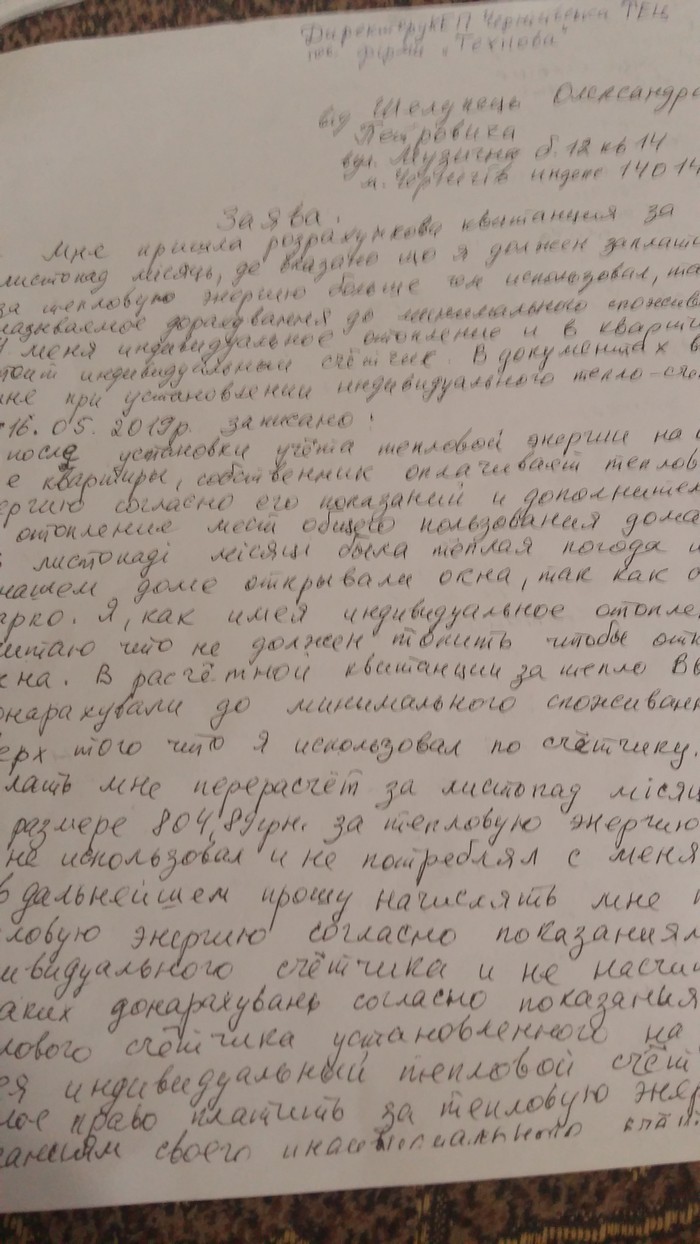 Директору КЕП Чернігівська ТЕЦ
тов. фірми „Технова"
від Шелупець Олександра
Петровича
вул. Музична б. 12 кв 14
м. Чернігів индекс 14014
Заява.
Мне пришла розрахункова квитанция за
листопад місяць, де вказано що я должен заплати
за тепловую энергию больше чем использовал, та
называемое дорахування до минимального спожив
У меня индивидуальное отопление и в кварти
стоит индивидуальный счётчик. В документах в
мне при установлении индивидуального тепло-сч
16.05.2019р. записано:
после установки учёта тепловой энергии на
е квартиры, собственник оплачивает теплов
ергию согласно его показаний и дополнител
отопление мест общего пользования дома
в листопаді місяці была теплая погода и
нашем доме открывали окна, так как
арко. Я, как имея индивидуальное отопле
читаю что не должен топить чтобы отк
кна. В расчётной квитанции за тепло Вы
онарахували до минимального споживан
верх того что я использовал по счётчику.
лать мне перерасчёт за листопад місяц
размере 804,89грн. за тепловую энергию
не использовал и не потреблял с меня
в дальнейшем прошу начислять мне
ловую энергию согласно показаниям
ивидуального счётчика и не насчи
аких донарахувань согласно показания
лового счётчика установленного на
ея индивидуальный тепловой счёт
лое право платить за тепловую энер
заниям своего